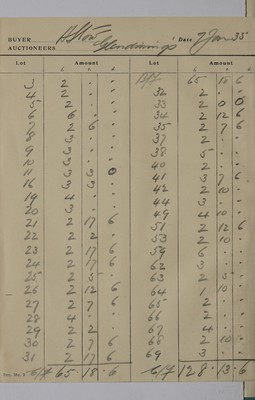 BUYER
AUCTIONEERS Glendinings
Date 2 Jan 35
Lot Amount Lot Amount
£ s. d. £ s. d.
3 2 - -
4 2 - -
5 2 - -
6 6 - -
7 2 6 -
8 3 - -
9 3 - -
10 3 - -
11 3 3 0
16 3 3 -
19 4 - -
20 3 - -
21 2 17 6
22 2 2 -
23 2 17 6
24 2 17 6
25 2 5 -
26 2 12 6
27 2 7 6
28 4 - -
29 2 2 -
30 2 7 6
31 2 17 6
C/f 65 18 6
B/f 65 18 6
32 2 - -
33 2 0 0
34 2 12 6
35 2 7 6
37 2 - -
38 5 - -
40 2 - -
41 3 7 6
42 2 10 -
44 3 - -
49 4 10 -
51 2 12 6
53 2 10 -
59 6 - -
62 3 - -
63 2 5 -
64 1 10 -
65 2 - -
66 2 - -
67 4 - -
68 2 10 -
69 3 - -
C/f 128 13 6